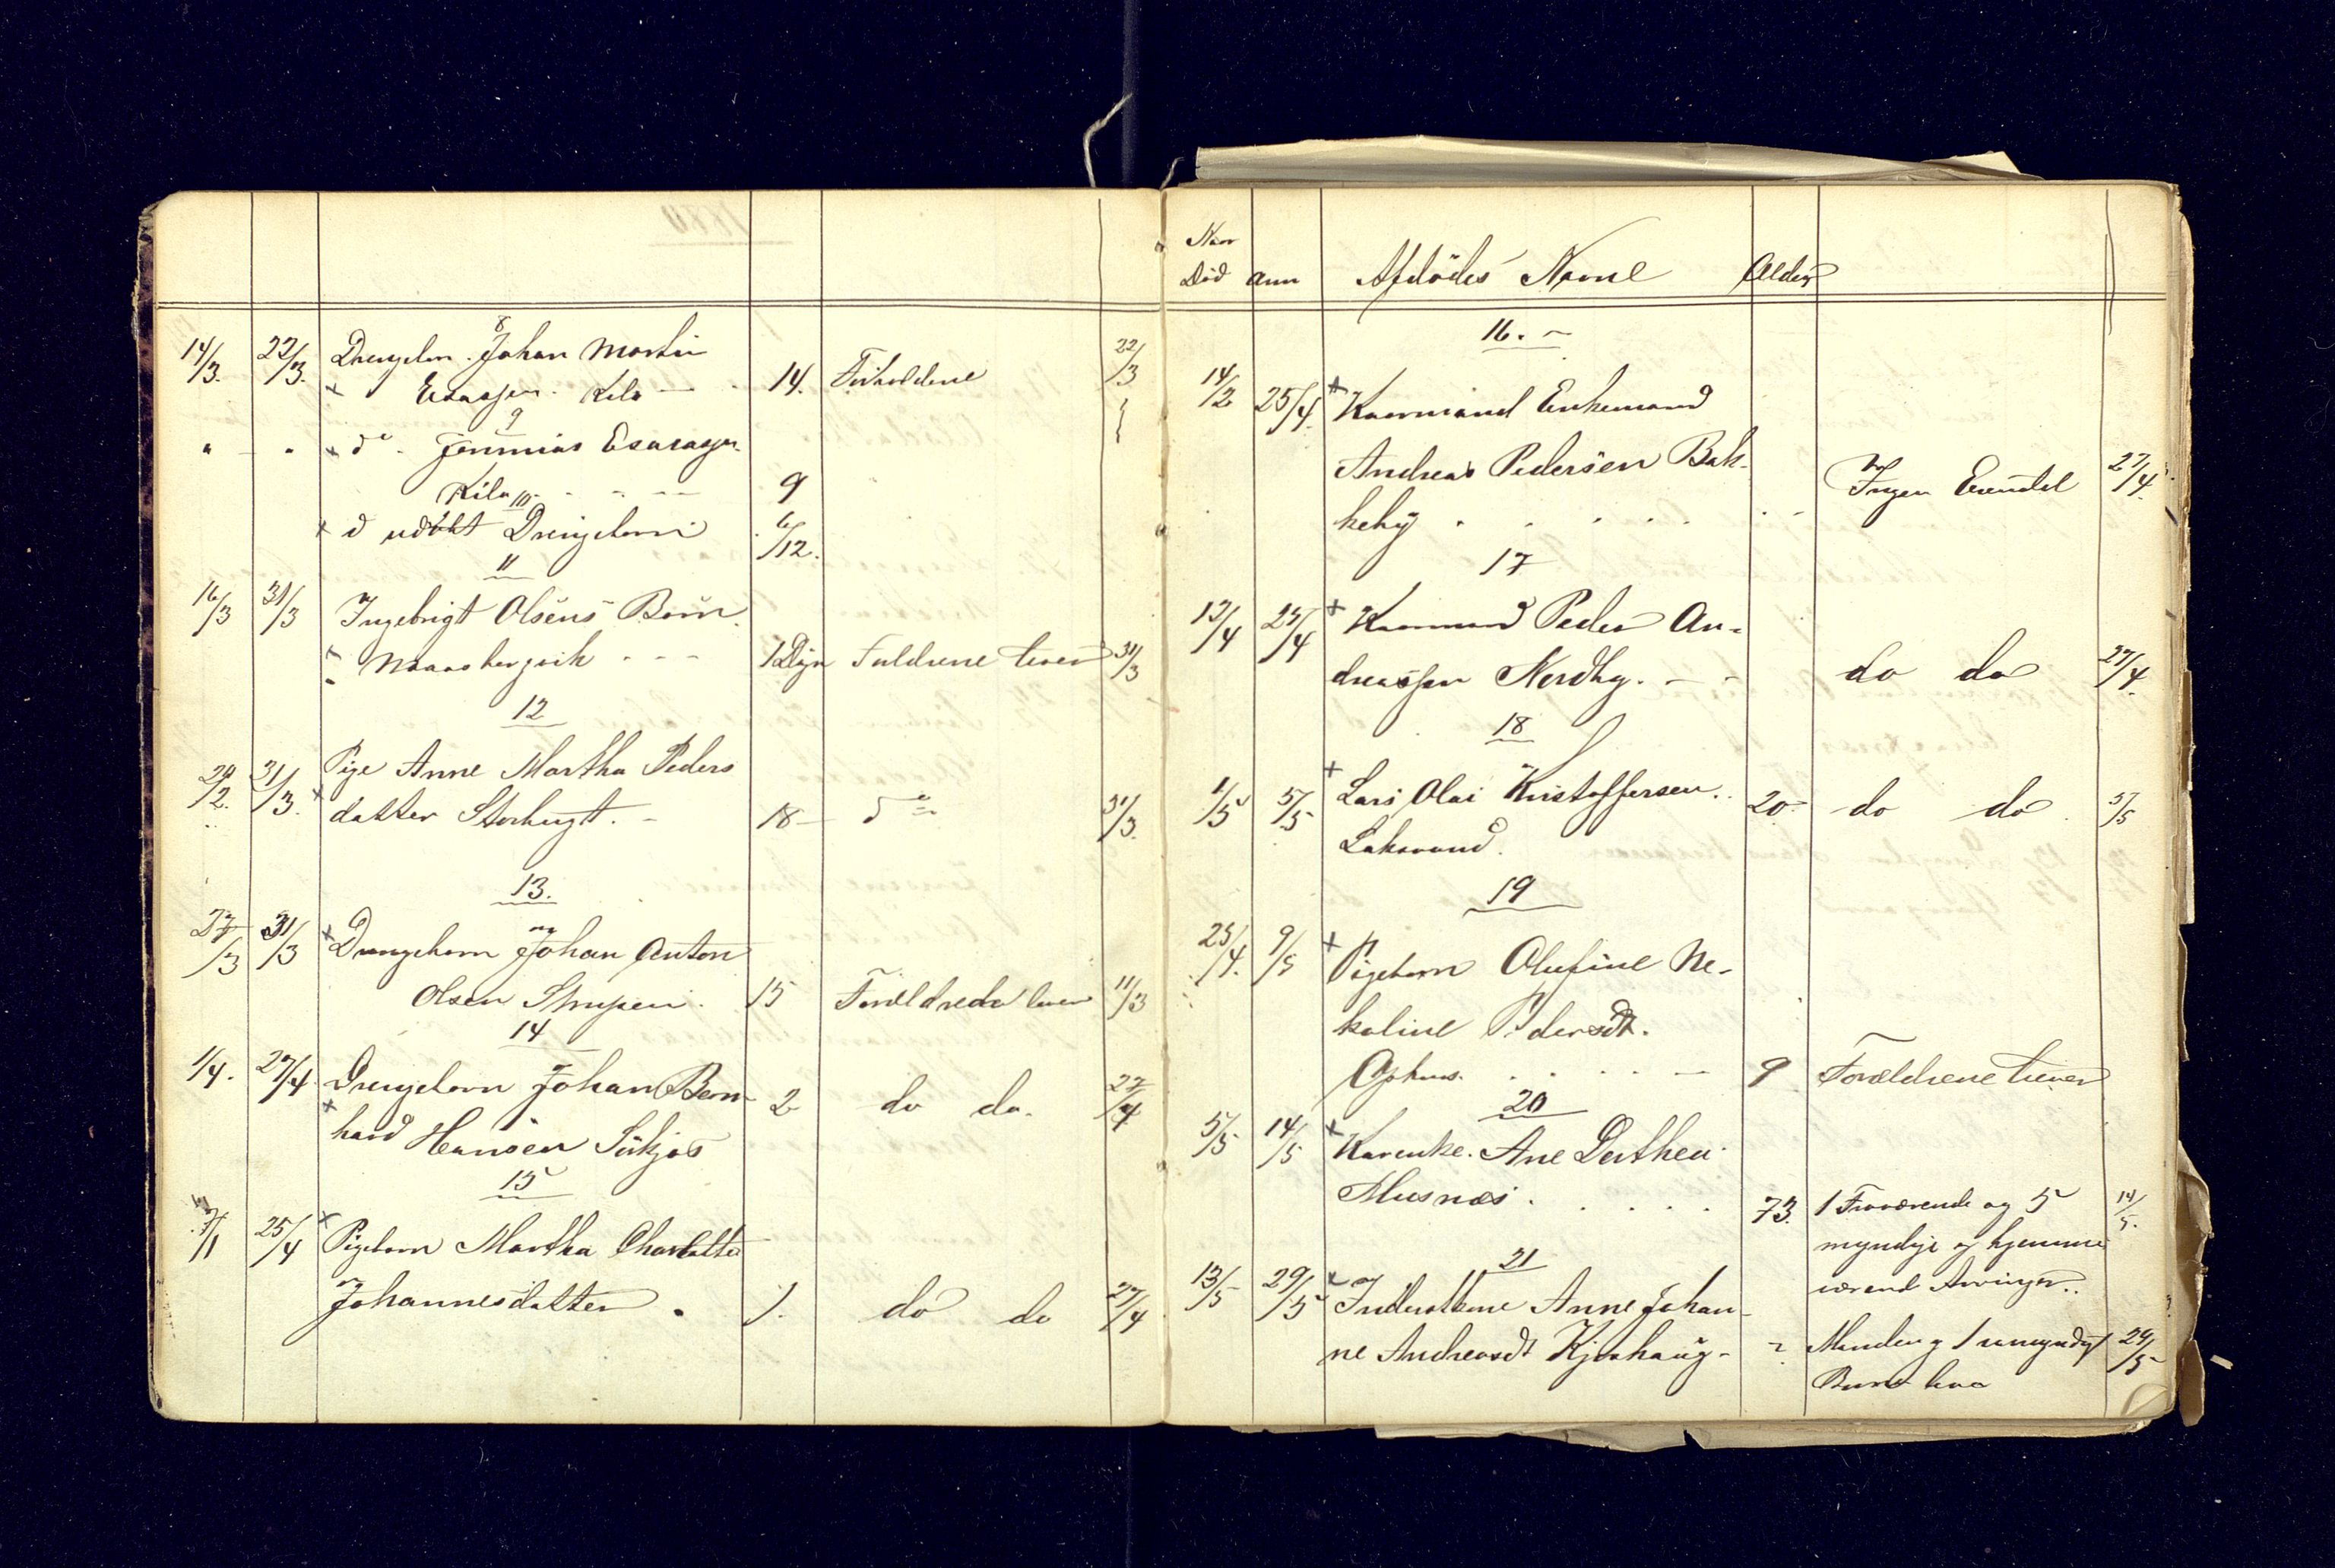 1880
8
14/3. 22/3. Drengebn. Johan Martin
+ Esaiassen. Kila 14. Forældrene 22/3
9
" " + do. Jeremias Esaiassen
Kila 9
10
+ d udøbt Drengebarn 6/12.
11
16/3 31/3 Ingebrigt Olsens Barn
+ 1 Døgn Foreldrene lever 31/3
12
29/2. 31/3. Pige Anne Martha Peders
+ datter 18 do 31/3.
13.
27/3 31/3 + Drengebarn Johan Anton
Olsen 15 Forældrede lever 11/3
14
1/4. 27/4. Drengebarn Johan Bern-
+ hard Hansen 2 do do. 27/4
15
7/1 25/4 + Pigebarn Martha Charlotte
Johannesdatter. 1. do do 27/4
Naar
Død anm Afdødes Navne Alder
16.
14/2 25/4. + Kaarmand Enkemand
Andreas Pedersen Bak-
keby Ingen Eiendel 27/4.
17
12/4 25/4 + Kaarmand Peder An-
dreassen Nordby. do do 27/4.
18
1/5 5/5 + Lars Olai Kristoffersen. 20 do do 5/5
Laksvand.
19
25/4. 9/5 + Pigebarn Olufine Ne-
koline Pedersdt.
Ophus. 9 Forældrene lever
20
5/5 14/5 + Karenke. Ane Derthea
Musnæs. 73. 1 Fraværende og 5 14/5.
myndige og hjemme
værend Arvinger.
21
13/5 29/5 + Anne Johan-
ne Andreasdt Kjoshaug- ? Manden og 1 umyndigt 29/5
Barn leve